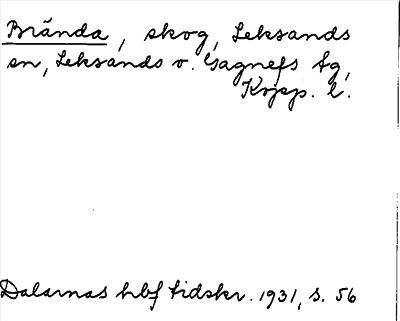 Brända, skog, Leksands
sn, Leksands o. Gagnefs tg,
Kopp. l.
Dalarnas hbf tidskr. 1931, s. 56